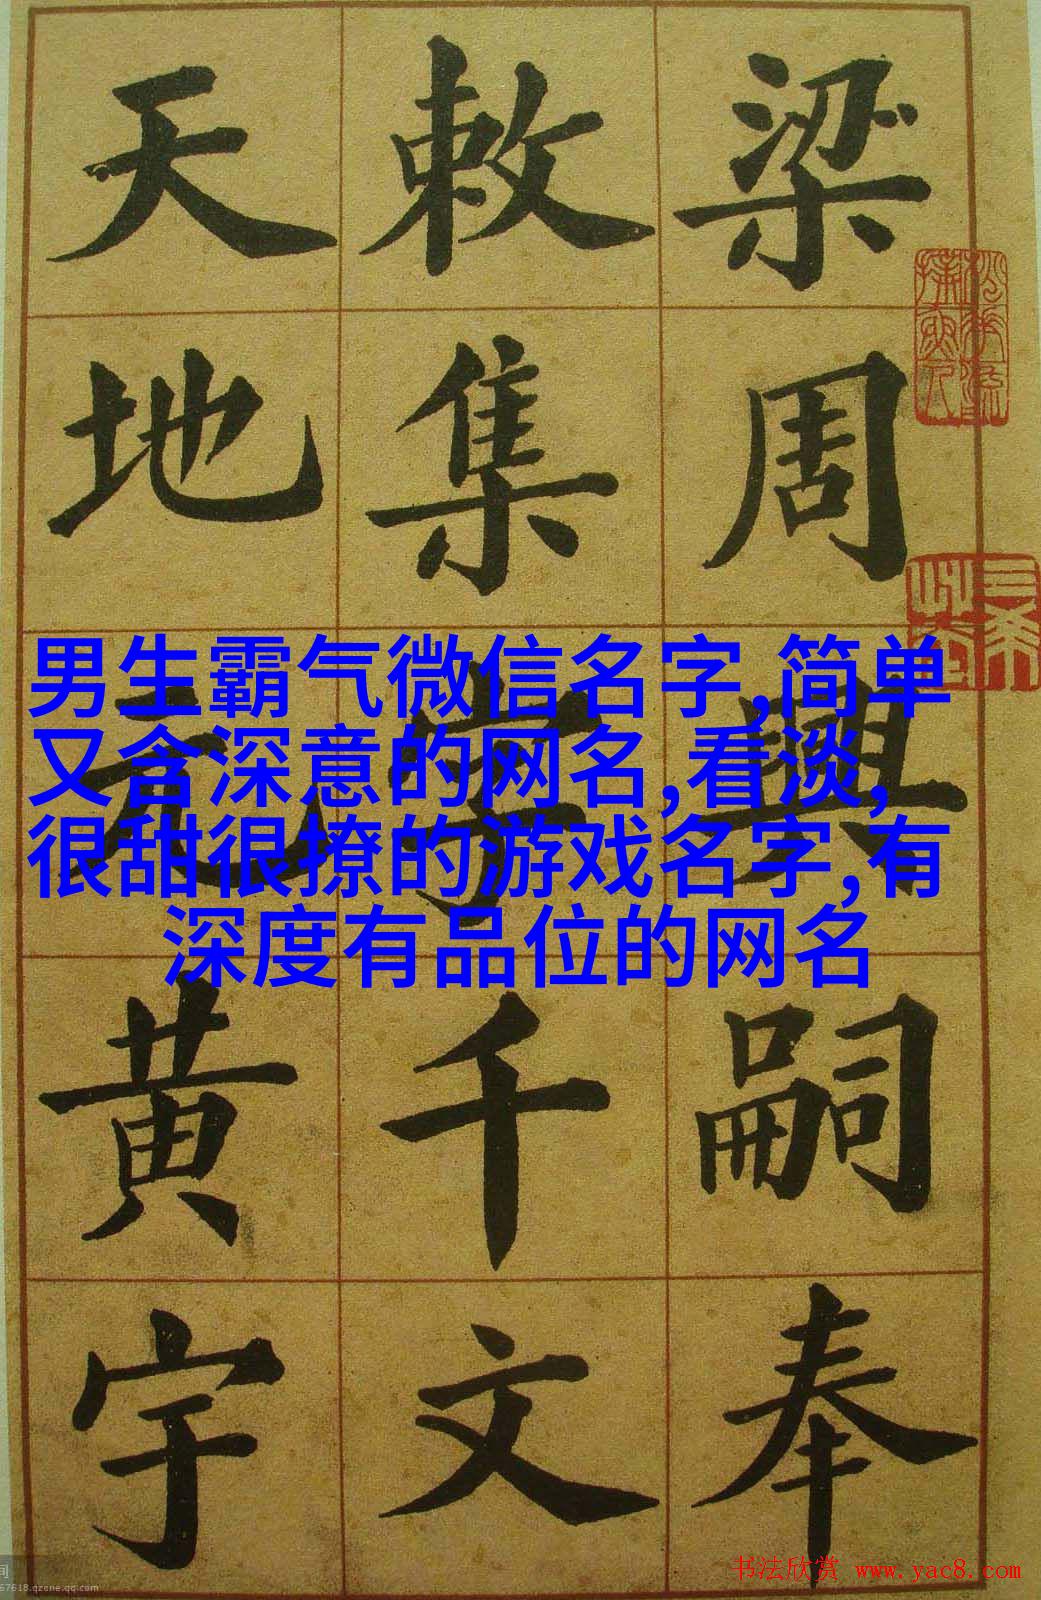 梁周興嗣奉
敕集字千文
天地元黄宇
男生霸气微信名字,简单
又含深意的网名,看淡,
很甜很撩的游戏名字,有
深度有品位的网名
书法欣赏 www.yac8.com
间
67618.qzone.qq.com